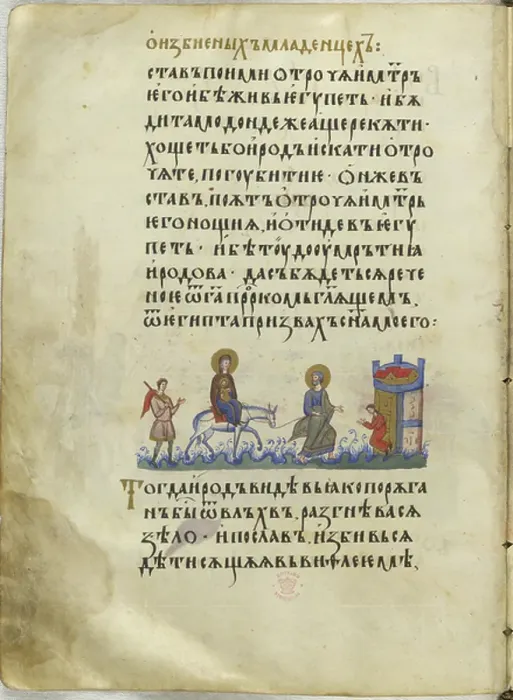 ѡ избиеныхъ младенцехъ:
ставъ поими отрочѧ и мт҃рь
ѥго и бѣжи въ ѥгѵпетъ · и бѫ
ди тамо дондеже аще рекѫ ти ·
хощетъ бо иродъ искати отро
чѧте, погꙋбитиѥ · онже въ
ставъ, поѧтъ отрочѧ и мт҃рь
ѥго нощиѧ, и отиде въ ѥгѵ
петъ · и бѣ тоу до оумрътиꙗ
иродова · да съ бѫдеть сѧ рече
ноѥ ѿ г҃а прⷪ҇ркомь гл҃ѧщемъ,
ѿ египта призвахъ сн҃а моего:
Тогда иродъ видѣвъ ꙗко порѫга
нъ быⷭ҇ ѿ влъхвъ, разгнѣва сѧ
ѕѣло · и пославъ, изби вьсѧ
дѣти сѫщѧѧ въ виѳлеемѣ,